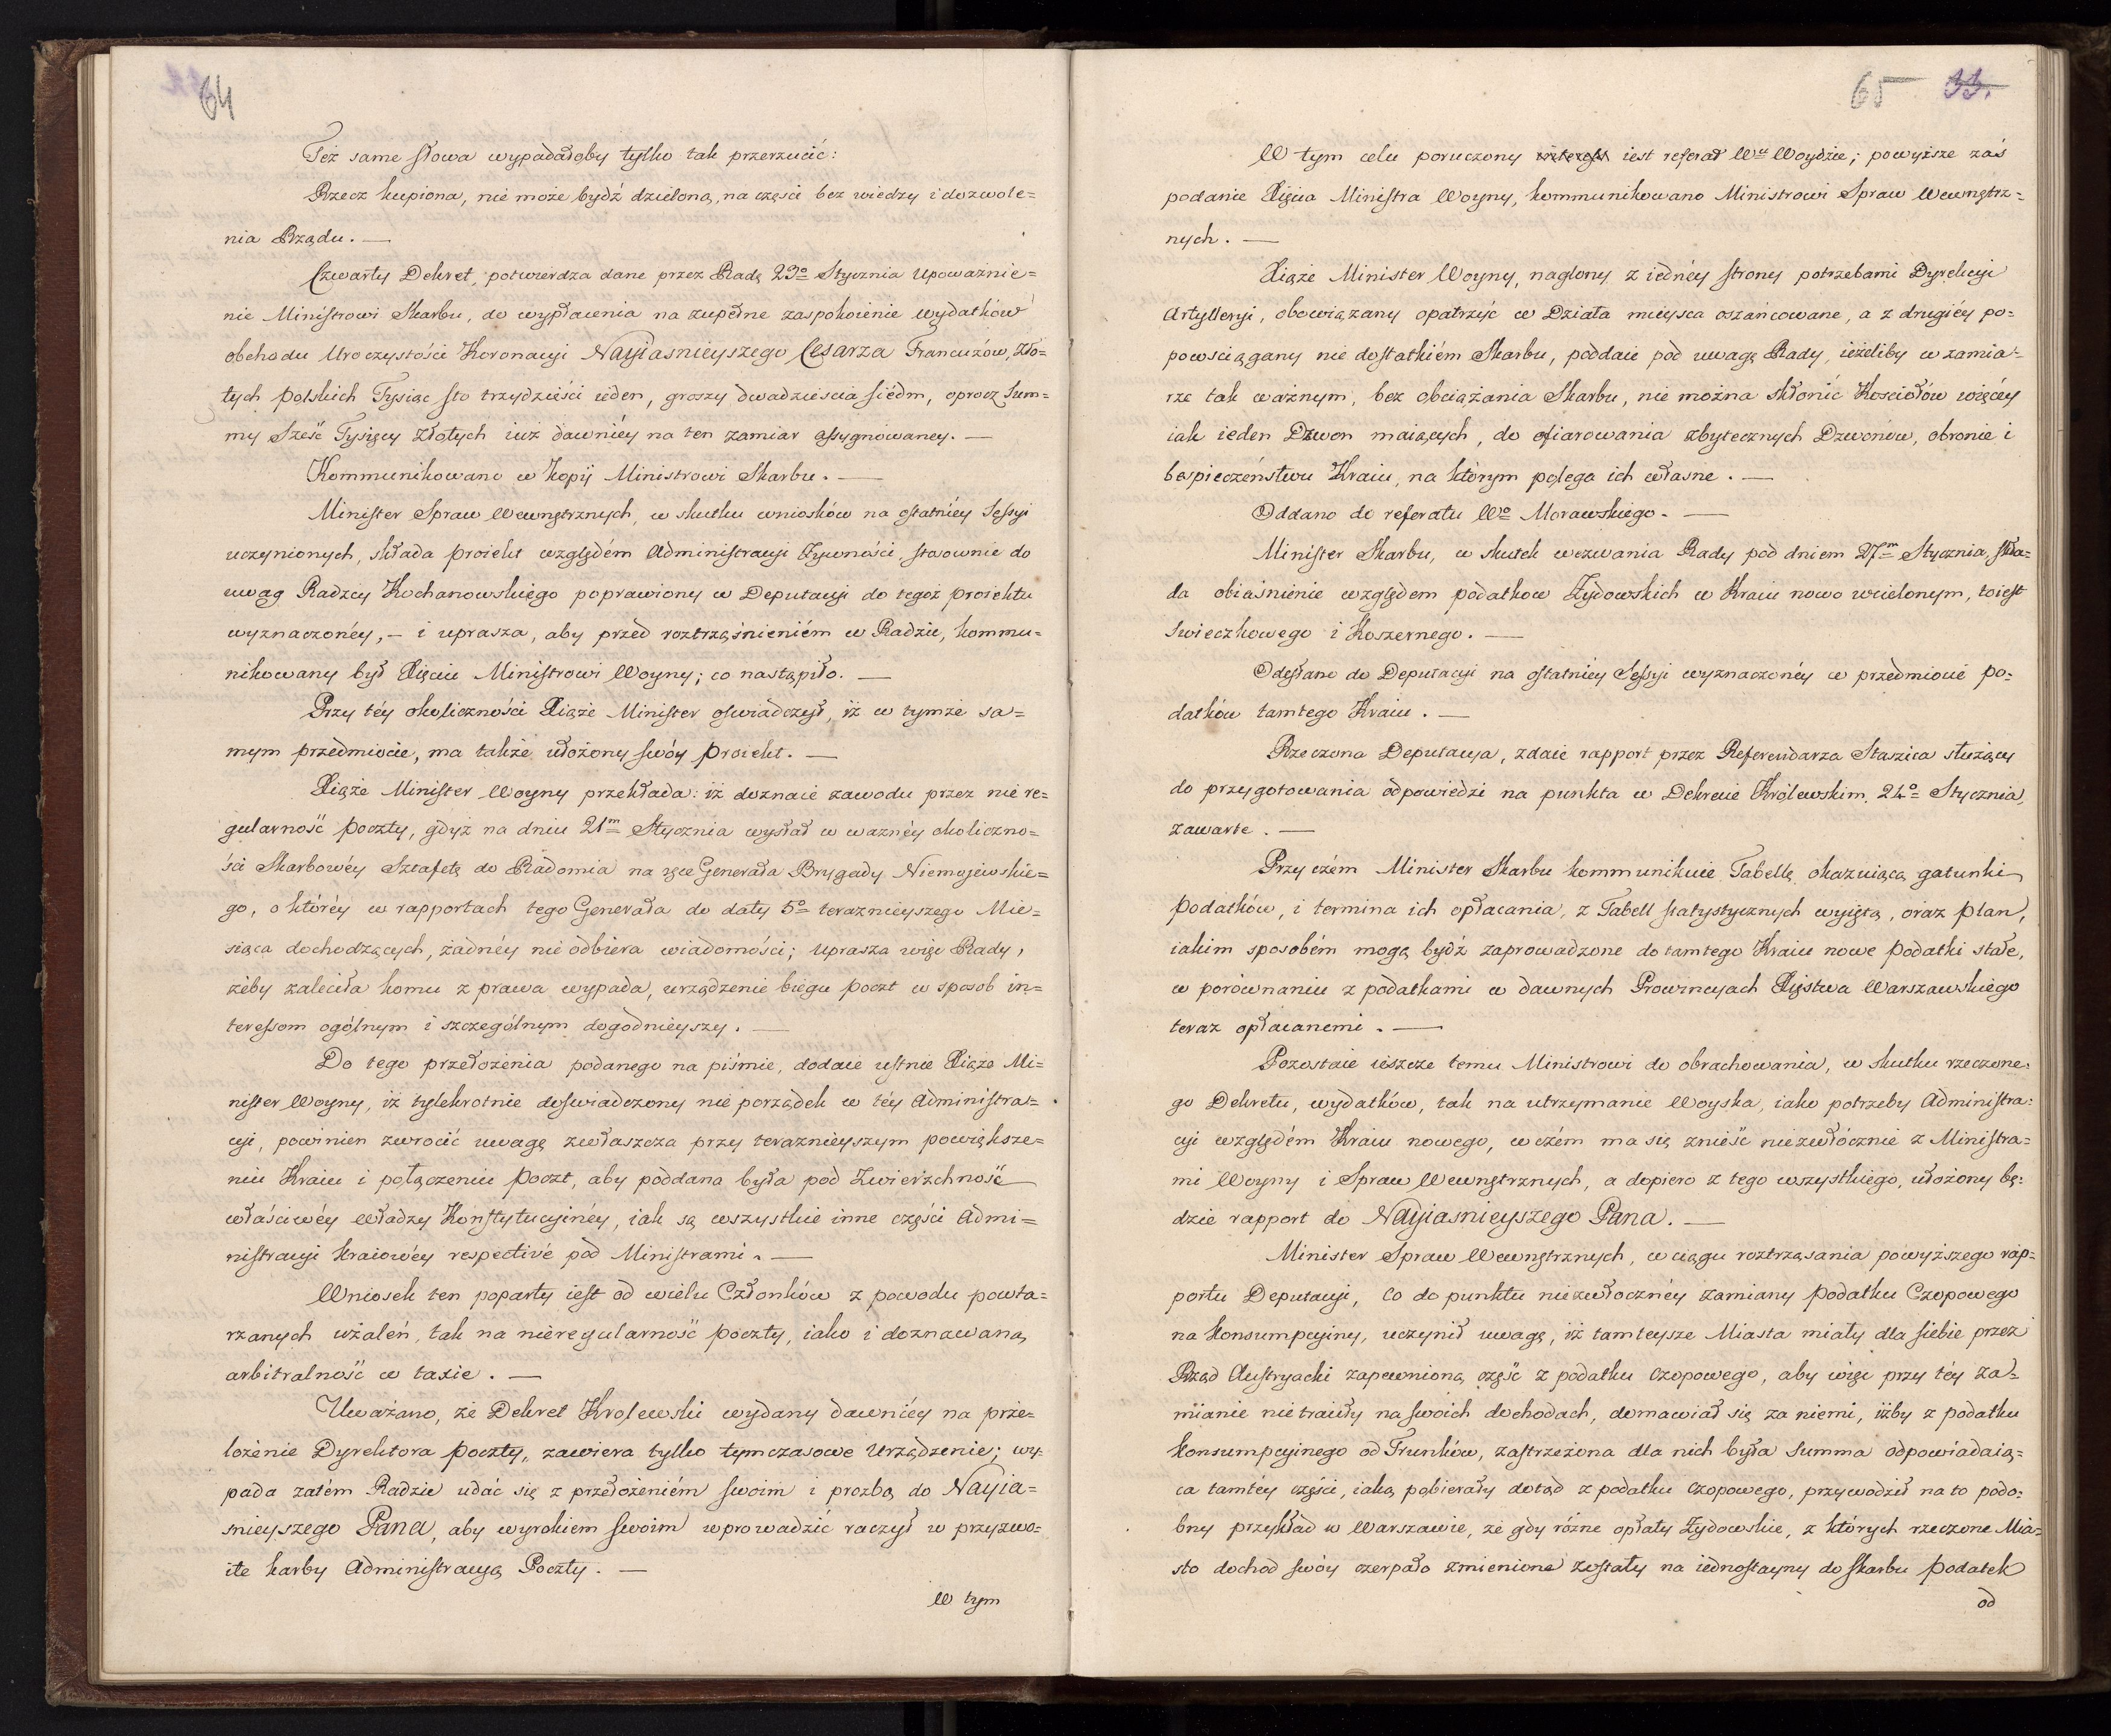 64
Też same słowa wypadałoby tylko tak przerzucić:
Rzecz kupiona, nie może bydź dzieloną, na części bez wiedzy i dozwole=
nia Rządu. —
Czwarty Dekret, potwierdza dane przez Radę 23º Stycznia upoważnie=
nie Ministrowi Skarbu, do wypłacenia na zupełne zaspokoienie wydatków
obchodu Uroczystości Koronacyi Nayiasnieyszego Cesarza Francuzów, Zło=
tych polskich Tysiąc sto trzydzieści ieden, groszy dwadzieścia siédm, oprocz Sum=
my Sześć Tysięcy Złotych iuż dawniéy na ten zamiar assygnowaney. —
Kommunikowano w kopij Ministrowi Skarbu. —
Minister Spraw Wewnętrznych, w skutku wniosków na ostatniéy Sessyi
uczynionych, składa proiekt względém Administracyi Żywności, stosownie do
uwag Radzcy Kochanowskiego poprawiony w Deputacyi do tegoż proiektu
wyznaczonéy, – i uprasza, aby przed roztrząśnieniém w Radzie, kommu=
nikowany był Xięciu Ministrowi Woyny; co nastąpiło. —
Przy téy okoliczności Xiąże Minister oświadczył, iż w tymże sa=
mym przedmiocie, ma także ułożony swóy proiekt. —
Xiąże Minister Woyny przekłada: iż doznaie zawodu przez nie re=
gularność poczty, gdyż na dniu 21m Stycznia wysłał w ważnéy okoliczno=
ści Skarbowéy Sztafetę do Radomia na ręce Generała Brygady Niemojewskie=
go, o któréy w rapportach tego Generała do daty 5º teraznieyszego Mie=
siąca dochodzących, żadnéy nie odbiera wiadomości; uprasza więc Rady,
żeby zaleciła komu z prawa wypada, urządzenie biegu poczt w sposob in=
teressom ogólnym i szczególnym dogodnieyszy. —
Do tego przełożenia podanego na piśmie, dodaie ustnie Xiąże Mi=
nister Woyny, iż tylekrotnie doswiadczony nie porządek w téy Administra=
cyi, powinien zwrocić uwagę zwłaszcza przy teraznieyszym powiększe=
niu Kraiu i połączeniu poczt, aby poddana była pod Zwierzchność
właściwéy władzy Konstytucyinéy, iak są wszystkie inne części Admi=
nistracyi kraiowéy respectivé pod Ministrami. —
Wniosek ten poparty iest od wielu Członków z powodu powta=
rzanych użaleń, tak na nieregularność poczty, iako i doznawaną
arbitralność w taxie. —
Uważano, że Dekret Krolewski wydany dawniéy na prze=
łożenie Dyrektora poczty, zawiera tylko tymczasowe urządzenie; wy=
pada zatém Radzie udać się z przełożeniém swoim i prozbą do Nayia=
snieyszego Pana, aby wyrokiem swoim wprowadzić raczył w przyzwo=
ite karby Administracyą Poczty. —
W tym
65 33.
W tym celu poruczony iest referat Wu Woydzie; powyższe zaś
podanie Xięcia Ministra Woyny, kommunikowano Ministrowi Spraw Wewnętrz=
nych. —
Xiąże Minister Woyny, naglony z iednéy strony potrzebami Dyrekcyi
Artylleryi, obowiązany opatrzyć w Działa mieysca oszańcowane, a z drugiéy po=
powsciągany nie dostatkiém Skarbu, poddaie pod uwagę Rady, ieżeliby w zamia=
rze tak ważnym, bez obciążania Skarbu, nie można skłonić Kosciołów więcéy
iak ieden Dzwon maiących, do ofiarowania zbytecznych Dzwonów, obronie i
bespieczeństwu Kraiu, na którym polega ich własne. —
Oddano do referatu Wo Morawskiego. —
Minister Skarbu, w skutek wezwania Rady pod dniem 27m Stycznia, skła=
da obiaśnienie względem podatkow Żydowskich w Kraiu nowo wcielonym, toiest
Swieczkowego i Koszernego. —
Odesłano do Deputacyi na ostatniéy Sessyi wyznaczonéy w przedmiocie po=
datków tamtego Kraiu. —
Rzeczona Deputacya, zdaie rapport przez Referendarza Staszica służący
do przygotowania odpowiedzi na punkta w Dekrecie Królewskim, 24º Stycznia,
zawarte. —
Przy czém Minister Skarbu kommunikuie Tabellę okazuiącą gatunki
podatków, i termina ich opłacania, z Tabell statystycznych wyiętą, oraz plan,
iakim sposobém mogą bydź zaprowadzone do tamtego Kraiu nowe podatki stałe,
w porównaniu z podatkami w dawnych Prowincyach Xięstwa Warszawskiego
teraz opłacanemi. —
Pozostaie ieszcze temu Ministrowi do obrachowania, w skutku rzeczone=
go Dekretu, wydatków, tak na utrzymanie Woyska, iako potrzeby Administra=
cyi względém Kraiu nowego, w czém ma się znieść niezwłócznie z Ministra=
mi Woyny i Spraw Wewnętrznych, a dopiero z tego wszystkiego, ułożony bę=
dzie rapport do Nayiasnieyszego Pana. —
Minister Spraw Wewnętrznych, w ciągu roztrząsania powyższego rap=
portu Deputacyi, co do punktu niezwłocznéy zamiany podatku Czopowego
na konsumpcyiny, uczynił uwagę, iż tamteysze Miasta miały dla siebie przez
Rząd Austryacki zapewnioną część z podatku czopowego, aby więc przy téy za=
mianie nie traciły na swoich dochodach, domawiał się za niemi, iżby z podatku
konsumpcyinego od Trunków, zastrzeżona dla nich była Summa odpowiadaią=
ca tamtéy części, iaką pobierały dotąd z podatku czopowego, przywodził na to podo=
bny przykład w Warszawie, że gdy różne opłaty Żydowskie, z których rzeczone Mia=
sto dochod swóy czerpało zmienione zostały na iednostayny do skarbu podatek
od